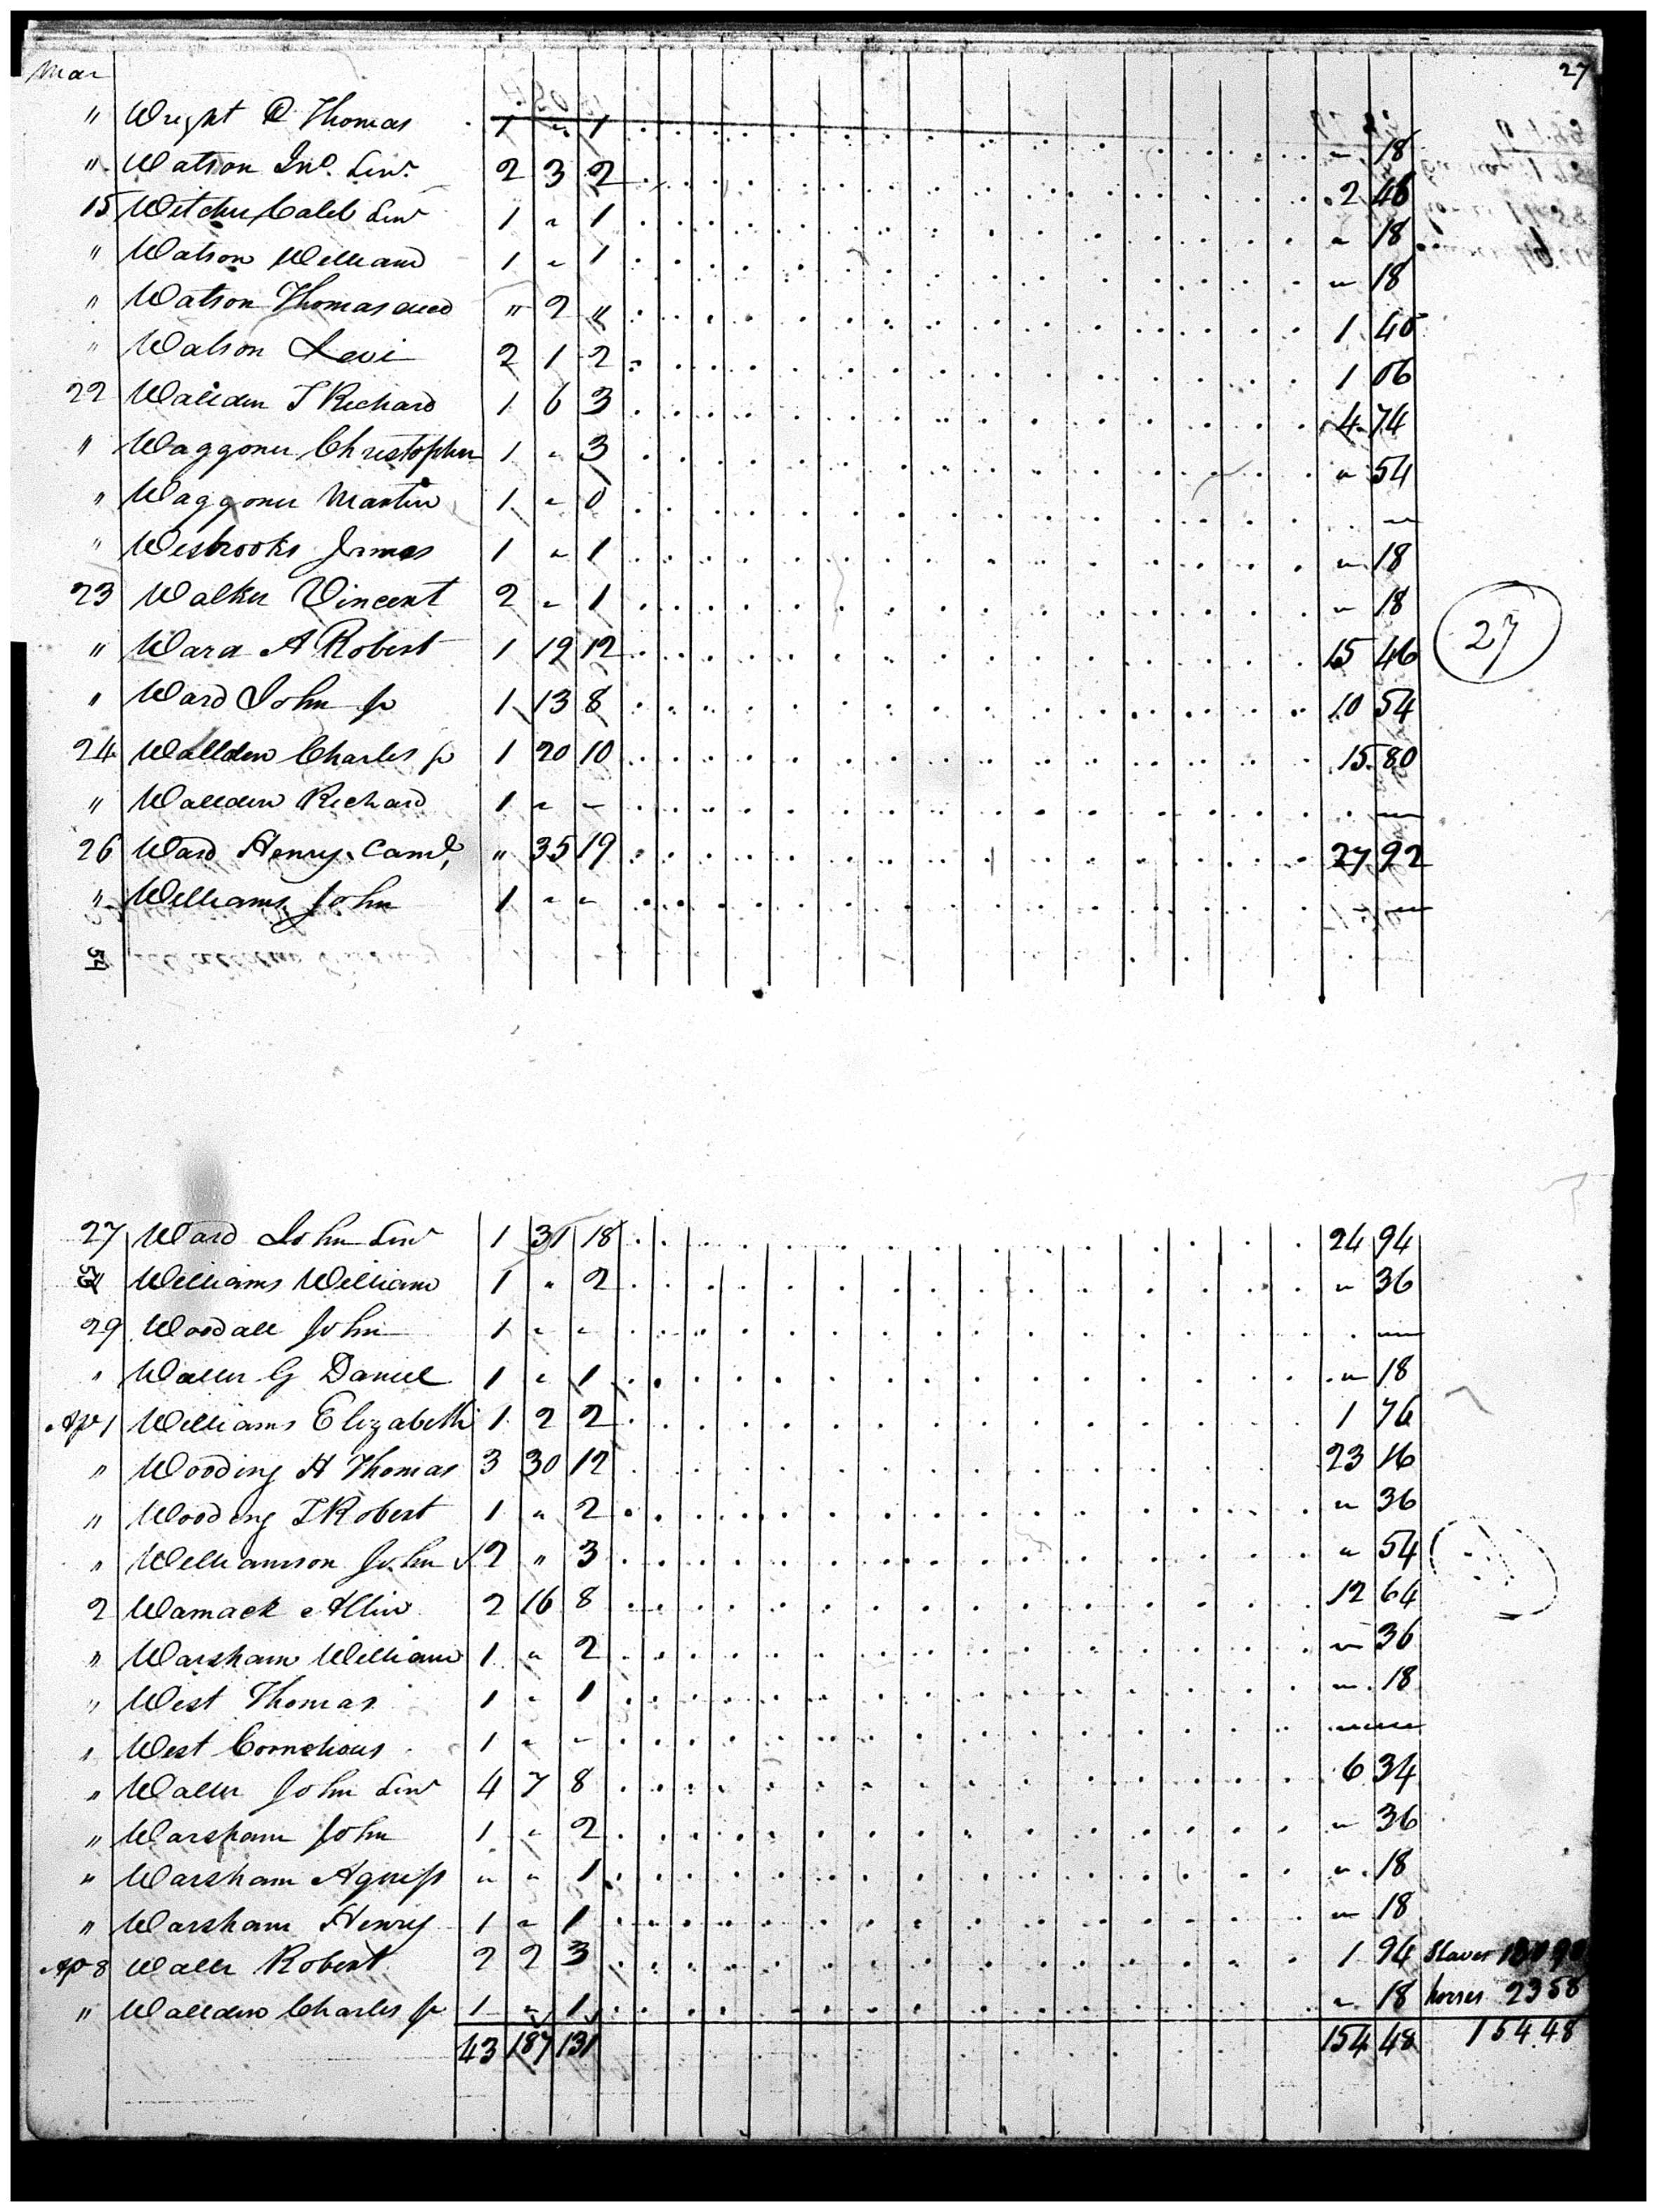 Mar 27
" Wright D Thomas 1 " 1 " 18
" Watson Jno. Senr. 2 3 2 2 46
15 Witcher Caleb Senr 1 " 1 " 18
" Watson William 1 " 1 " 18
" Watson Thomas decd " 2 " 1 40
" Watson Levi 2 1 2 1 06
22 Wallden T Richard 1 6 3 4 74
" Waggoner Christopher 1 " 3 " 54
" Waggoner Martin 1 " 0 —
" Wesbrooks James 1 " 1 " 18
23 Walker Vincent 2 " 1 " 18
27
" Ward A Robert 1 19 12 15 46
" Ward John Jr 1 13 8 10 54
24 Wallden Charles Jr 1 20 10 15 80
" Wallden Richard 1 " " —
26 Ward Henry Camd. " 35 19 27 92
" Williams John 1 " " " —
54
27 Ward John Senr 1 31 18 24 94
" Williams William 1 " 2 " 36
29 Woodall John 1 " " —
" Waller G Daniel 1 " 1 " 18
Apr 1 Williams Elizabeth 1 2 2 1 76
" Wooding H Thomas 3 30 12 23 16
" Wooding T Robert 1 " 2 " 36
" Williamson John 2 " 3 " 54
2 Wamack Allin 2 16 8 12 64
" Warsham William 1 " 2 " 36
" West Thomas 1 " 1 " 18
" West Cornelious 1 " " —
" Waller John Senr 4 7 8 6 34
" Warsham John 1 " 2 " 36
" Warsham Agness " " 1 " 18
" Warsham Henry 1 " 1 " 18
Ap 8 Waller Robert 2 2 3 1 94 Slaves
" Wallden Charles Jr 1 " 1 " 18 horses 23 58
43 187 131 154 48 154.48